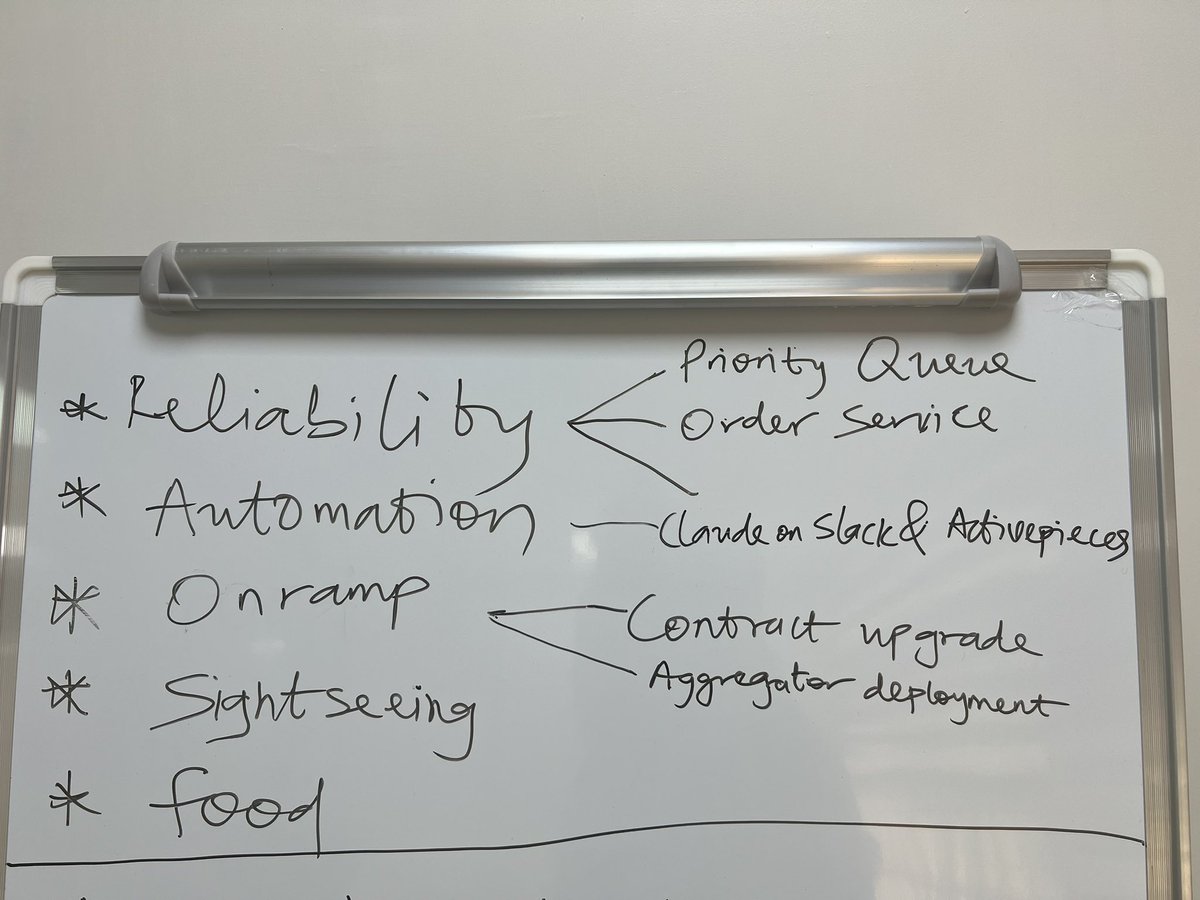 * Reliability
Priority Queue
Order service
* Automation
Claude on Slack & Activepieces
* Onramp
Contract upgrade
Aggregator deployment
* Sightseeing
* food